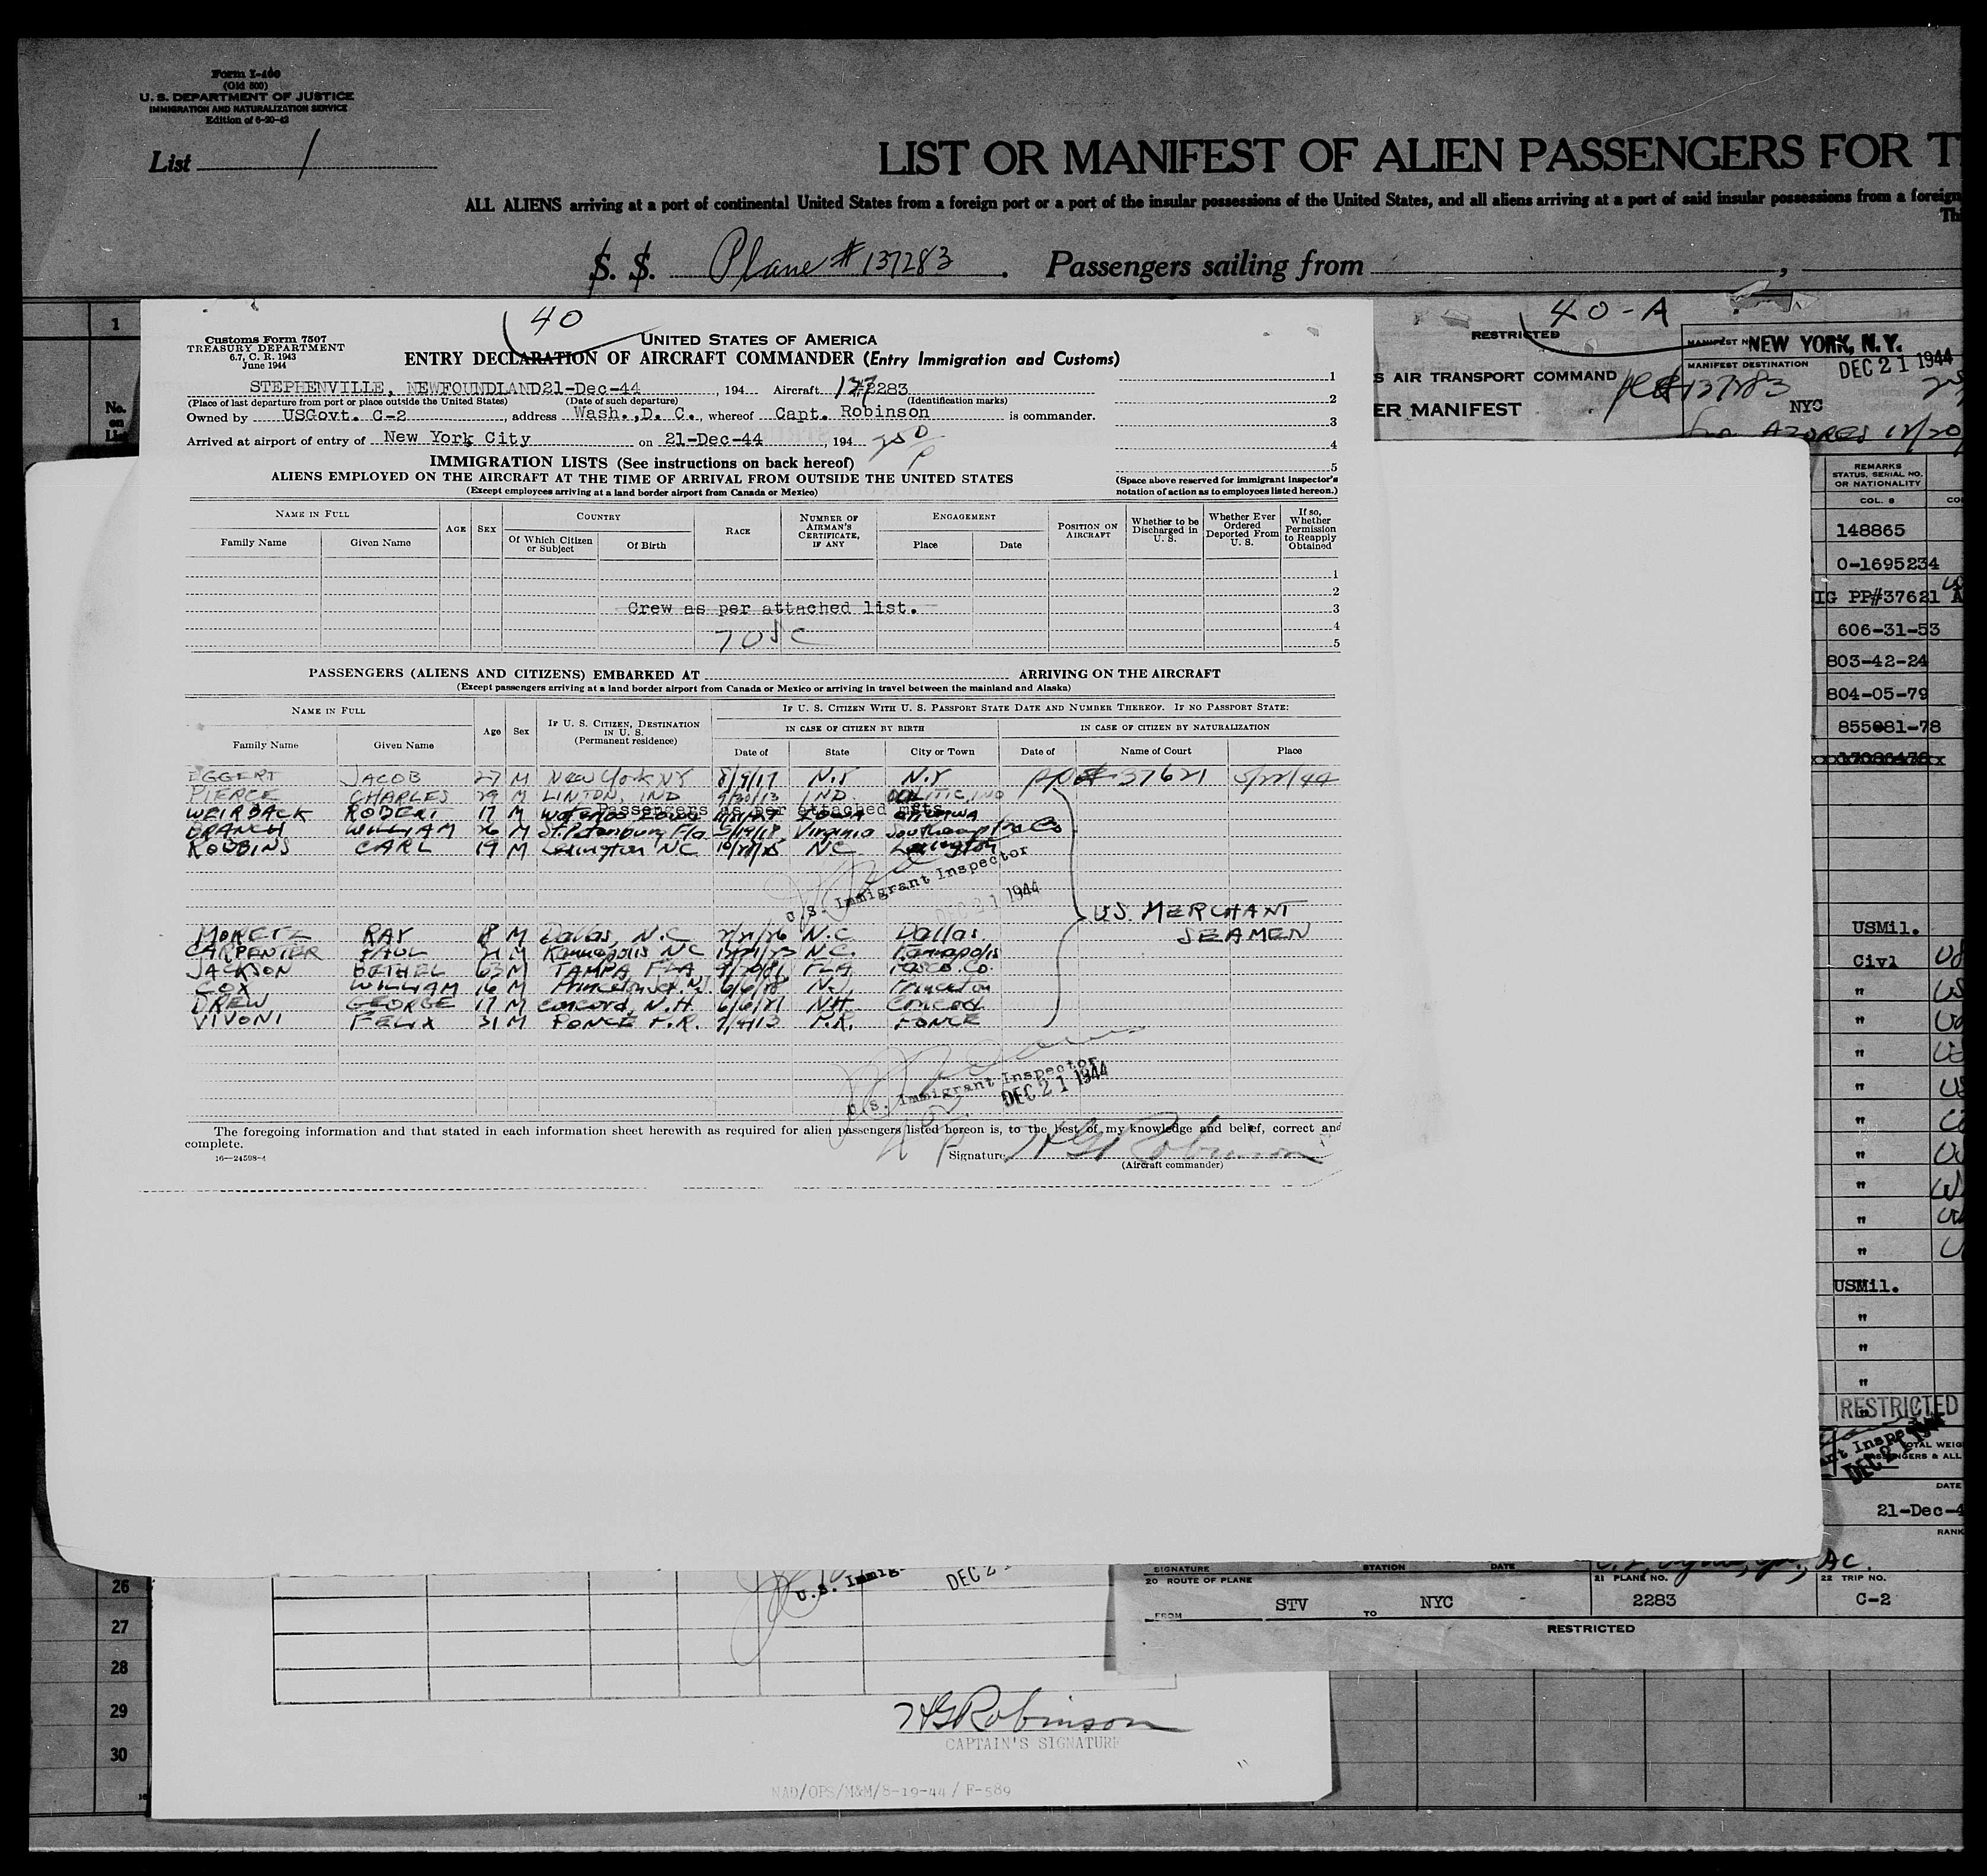 Form I-400
(Old 500)
U. S. DEPARTMENT OF JUSTICE
IMMIGRATION AND NATURALIZATION SERVICE
Edition of 6-20-42
List 1
LIST OR MANIFEST OF ALIEN PASSENGERS FOR T
ALL ALIENS arriving at a port of continental United States from a foreign port or a port of the insular possessions of the United States, and all aliens arriving at a port of said insular possessions from a foreign
Th
S. S. Plane # 137283. Passengers sailing from ,
1
No. on List
40
Customs Form 7507
TREASURY DEPARTMENT
6.7, C. R. 1943
June 1944
UNITED STATES OF AMERICA
ENTRY DECLARATION OF AIRCRAFT COMMANDER (Entry Immigration and Customs)
STEPHENVILLE, NEWFOUNDLAND 21-Dec-44, 194 Aircraft 137283
(Place of last departure from port or place outside the United States) (Date of such departure) (Identification marks)
Owned by USGovt. C-2, address Wash., D. C., whereof Capt. Robinson is commander.
Arrived at airport of entry of New York City on 21-Dec-44, 194 250 P
1
2
3
4
5
(Space above reserved for immigrant inspector's notation of action as to employees listed hereon.)
IMMIGRATION LISTS (See instructions on back hereof)
ALIENS EMPLOYED ON THE AIRCRAFT AT THE TIME OF ARRIVAL FROM OUTSIDE THE UNITED STATES
(Except employees arriving at a land border airport from Canada or Mexico)
NAME IN FULL AGE SEX COUNTRY RACE NUMBER OF AIRMAN'S CERTIFICATE, IF ANY ENGAGEMENT POSITION ON AIRCRAFT Whether to be Discharged in U. S. Whether Ever Ordered Deported From U. S. If so, Whether Permission to Reapply Obtained
Family Name Given Name Of Which Citizen or Subject Of Birth Place Date
1
2
Crew as per attached list. 3
4
5
PASSENGERS (ALIENS AND CITIZENS) EMBARKED AT ARRIVING ON THE AIRCRAFT
(Except passengers arriving at a land border airport from Canada or Mexico or arriving in travel between the mainland and Alaska)
NAME IN FULL Age Sex IF U. S. CITIZEN, DESTINATION IN U. S. (Permanent residence) IF U. S. CITIZEN WITH U. S. PASSPORT STATE DATE AND NUMBER THEREOF. IF NO PASSPORT STATE:
IN CASE OF CITIZEN BY BIRTH IN CASE OF CITIZEN BY NATURALIZATION
Family Name Given Name Date of State City or Town Date of Name of Court Place
EGGERT JACOB 27 M New York NY 8/9/17 N.Y N.Y PP# 37621 5/22/44
PIERCE CHARLES 29 M LINTON, IND IND OOLITIC, IND
Passengers as per attached msts.
WEIRBACK ROBERT 17 M IOWA
BRANCH WILLIAM 26 M St. Petersburg Fla 5/19/18 Virginia Southampton Co
ROBBINS CARL 19 M Lexington NC NC Lexington
U.S. Immigrant Inspector
DEC 21 1944
US. MERCHANT SEAMEN
MONETZ RAY 18 M Dallas, N.C N.C Dallas
CARPENTER PAUL 21 M Kannapolis NC N.C. Kannapolis
JACKSON BETHEL 63 M TAMPA, FLA FLA Pasco Co.
COX WILLIAM 16 M NJ Princeton
DREW GEORGE 17 M Concord, N.H. NH Concord
VIVONI FELIX 31 M PONCE P.R. P.R. PONCE
U.S. Immigrant Inspector
DEC 21 1944
The foregoing information and that stated in each information sheet herewith as required for alien passengers listed hereon is, to the best of my knowledge and belief, correct and complete.
16—24598-4
Signature H G Robinson
(Aircraft commander)
RESTRICTED
40-A
S AIR TRANSPORT COMMAND
ER MANIFEST
NEW YORK, N.Y.
MANIFEST DESTINATION
DEC 21 1944
137283
NYC
AZORES 12/20
REMARKS
STATUS, SERIAL NO. OR NATIONALITY
COL. 8
148865
0-1695234
IG PP#37621
606-31-53
803-42-24
804-05-79
855081-78
USMil.
Civl
"
"
"
"
"
"
"
"
"
USMil.
"
"
"
RESTRICTED
DEC 21
DATE
21-Dec-4
RANK
SIGNATURE STATION DATE AC.
20 ROUTE OF PLANE 21 PLANE NO. 22 TRIP NO.
FROM STV TO NYC 2283 C-2
RESTRICTED
26
27
28
29
30
U.S. Immig
DEC 2
HG Robinson
CAPTAIN'S SIGNATURE
NAD/OPS/M&M/8-19-44/ F-589